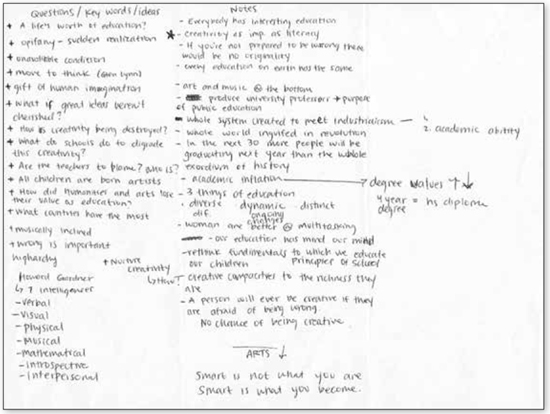 Questions / Key words / ideas
+ A life's worth of education?
+ opifany - sudden realization
+ condition
+ move to think (Gillian Lynn)
+ gift of human imagination
+ What if great ideas weren't
cherished?
+ How is creativity being destroyed?
+ What do schools do to digrade
this creativity?
+ Are the teachers to blame? Who is?
+ All children are born artists
+ How did Humanities and arts lose
their value as education?
+ What contries have the most
+ musically inclined
+ wrong is important
highardry
+ Nurture
creativity
↳ How?
Howard Gardner
↳ 7 intelligences
- Verbal
- Visual
- physical
- Musical
- mathematical
- introspective
- interpersonal
Notes
- Everybody has interesting education
★ - Creativity as imp. as literacy
- If you're not prepared to be wrong there
would be no originality
- every education on earth has the same
- art and music @ the bottom
- produce university professors → purpose
of public education
- whole system created to meet industrialism — 1.
2. academic ability
- whole world ingulfed in revolution
- In the next 30 more people will be
graduating next year than the whole
of history
- academic inflation → degree values ↑↓
4 year = hs diploma
degree
- 3 things of education
- diverse · dynamic · distinct
dif. ongoing
changes
- women are better @ multitasking
- our education has mind our mind
- rethink fundamentals to which we educate
our children principles of school
- creative compacities to the richness they
are
- A person will ever be creative if they
are afraid of being wrong.
No chance of being creative.
ARTS ↓
Smart is not what you are
Smart is what you become.